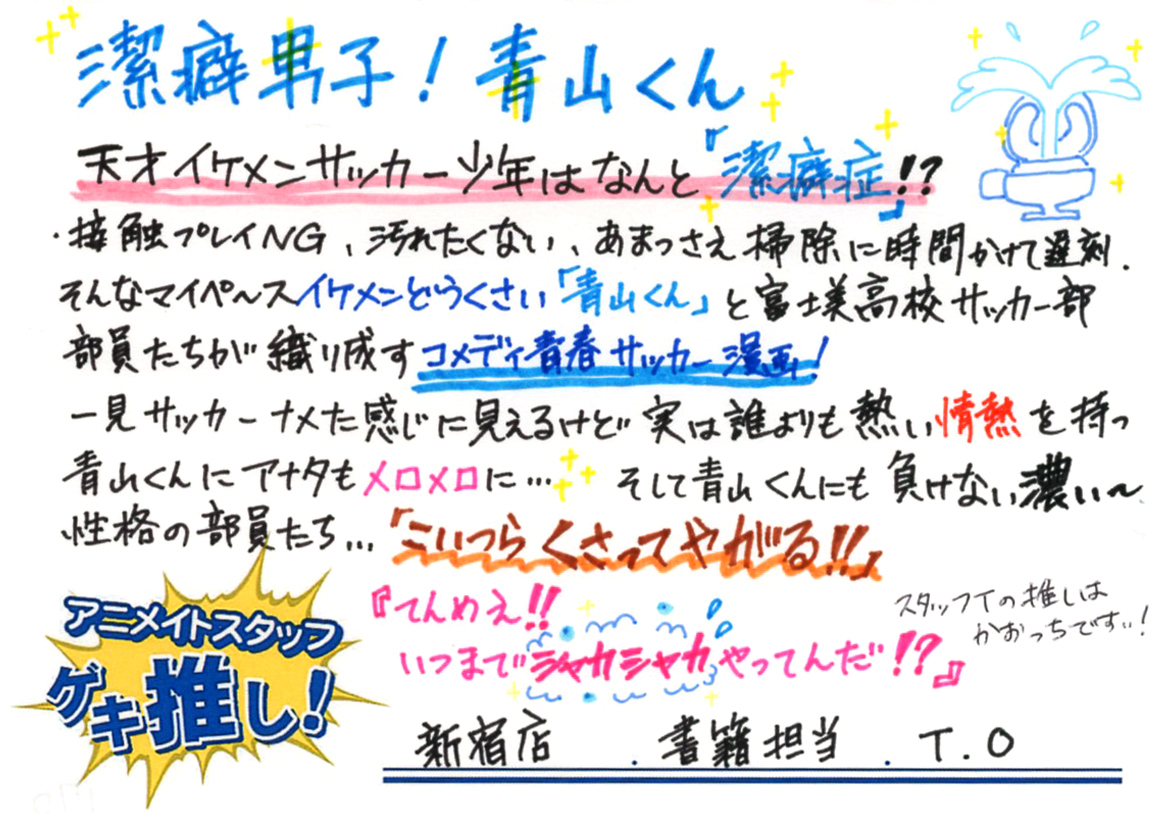 潔癖男子!青山くん
天才イケメンサッカー少年はなんと『潔癖症』!?
・接触プレイNG、汚れたくない、あまっさえ掃除に時間かけて遅刻.
そんなマイペースイケメンどらくさい「青山くん」と富士美高校サッカー部
部員たちが織り成すコメディ青春サッカー漫画!
一見サッカーナメた感じに見えるけど実は誰よりも熱い情熱を持つ
青山くんにアナタもメロメロに… そして青山くんにも負けない濃い〜
性格の部員たち…「こいつらくさってやがる!!」
『てんめえ!!
いつまでシャカシャカやってんだ!?』
スタッフTの推しは
かおっちですッ!
アニメイトスタッフ
ゲキ推し!
新宿店 . 書籍担当 . T.O